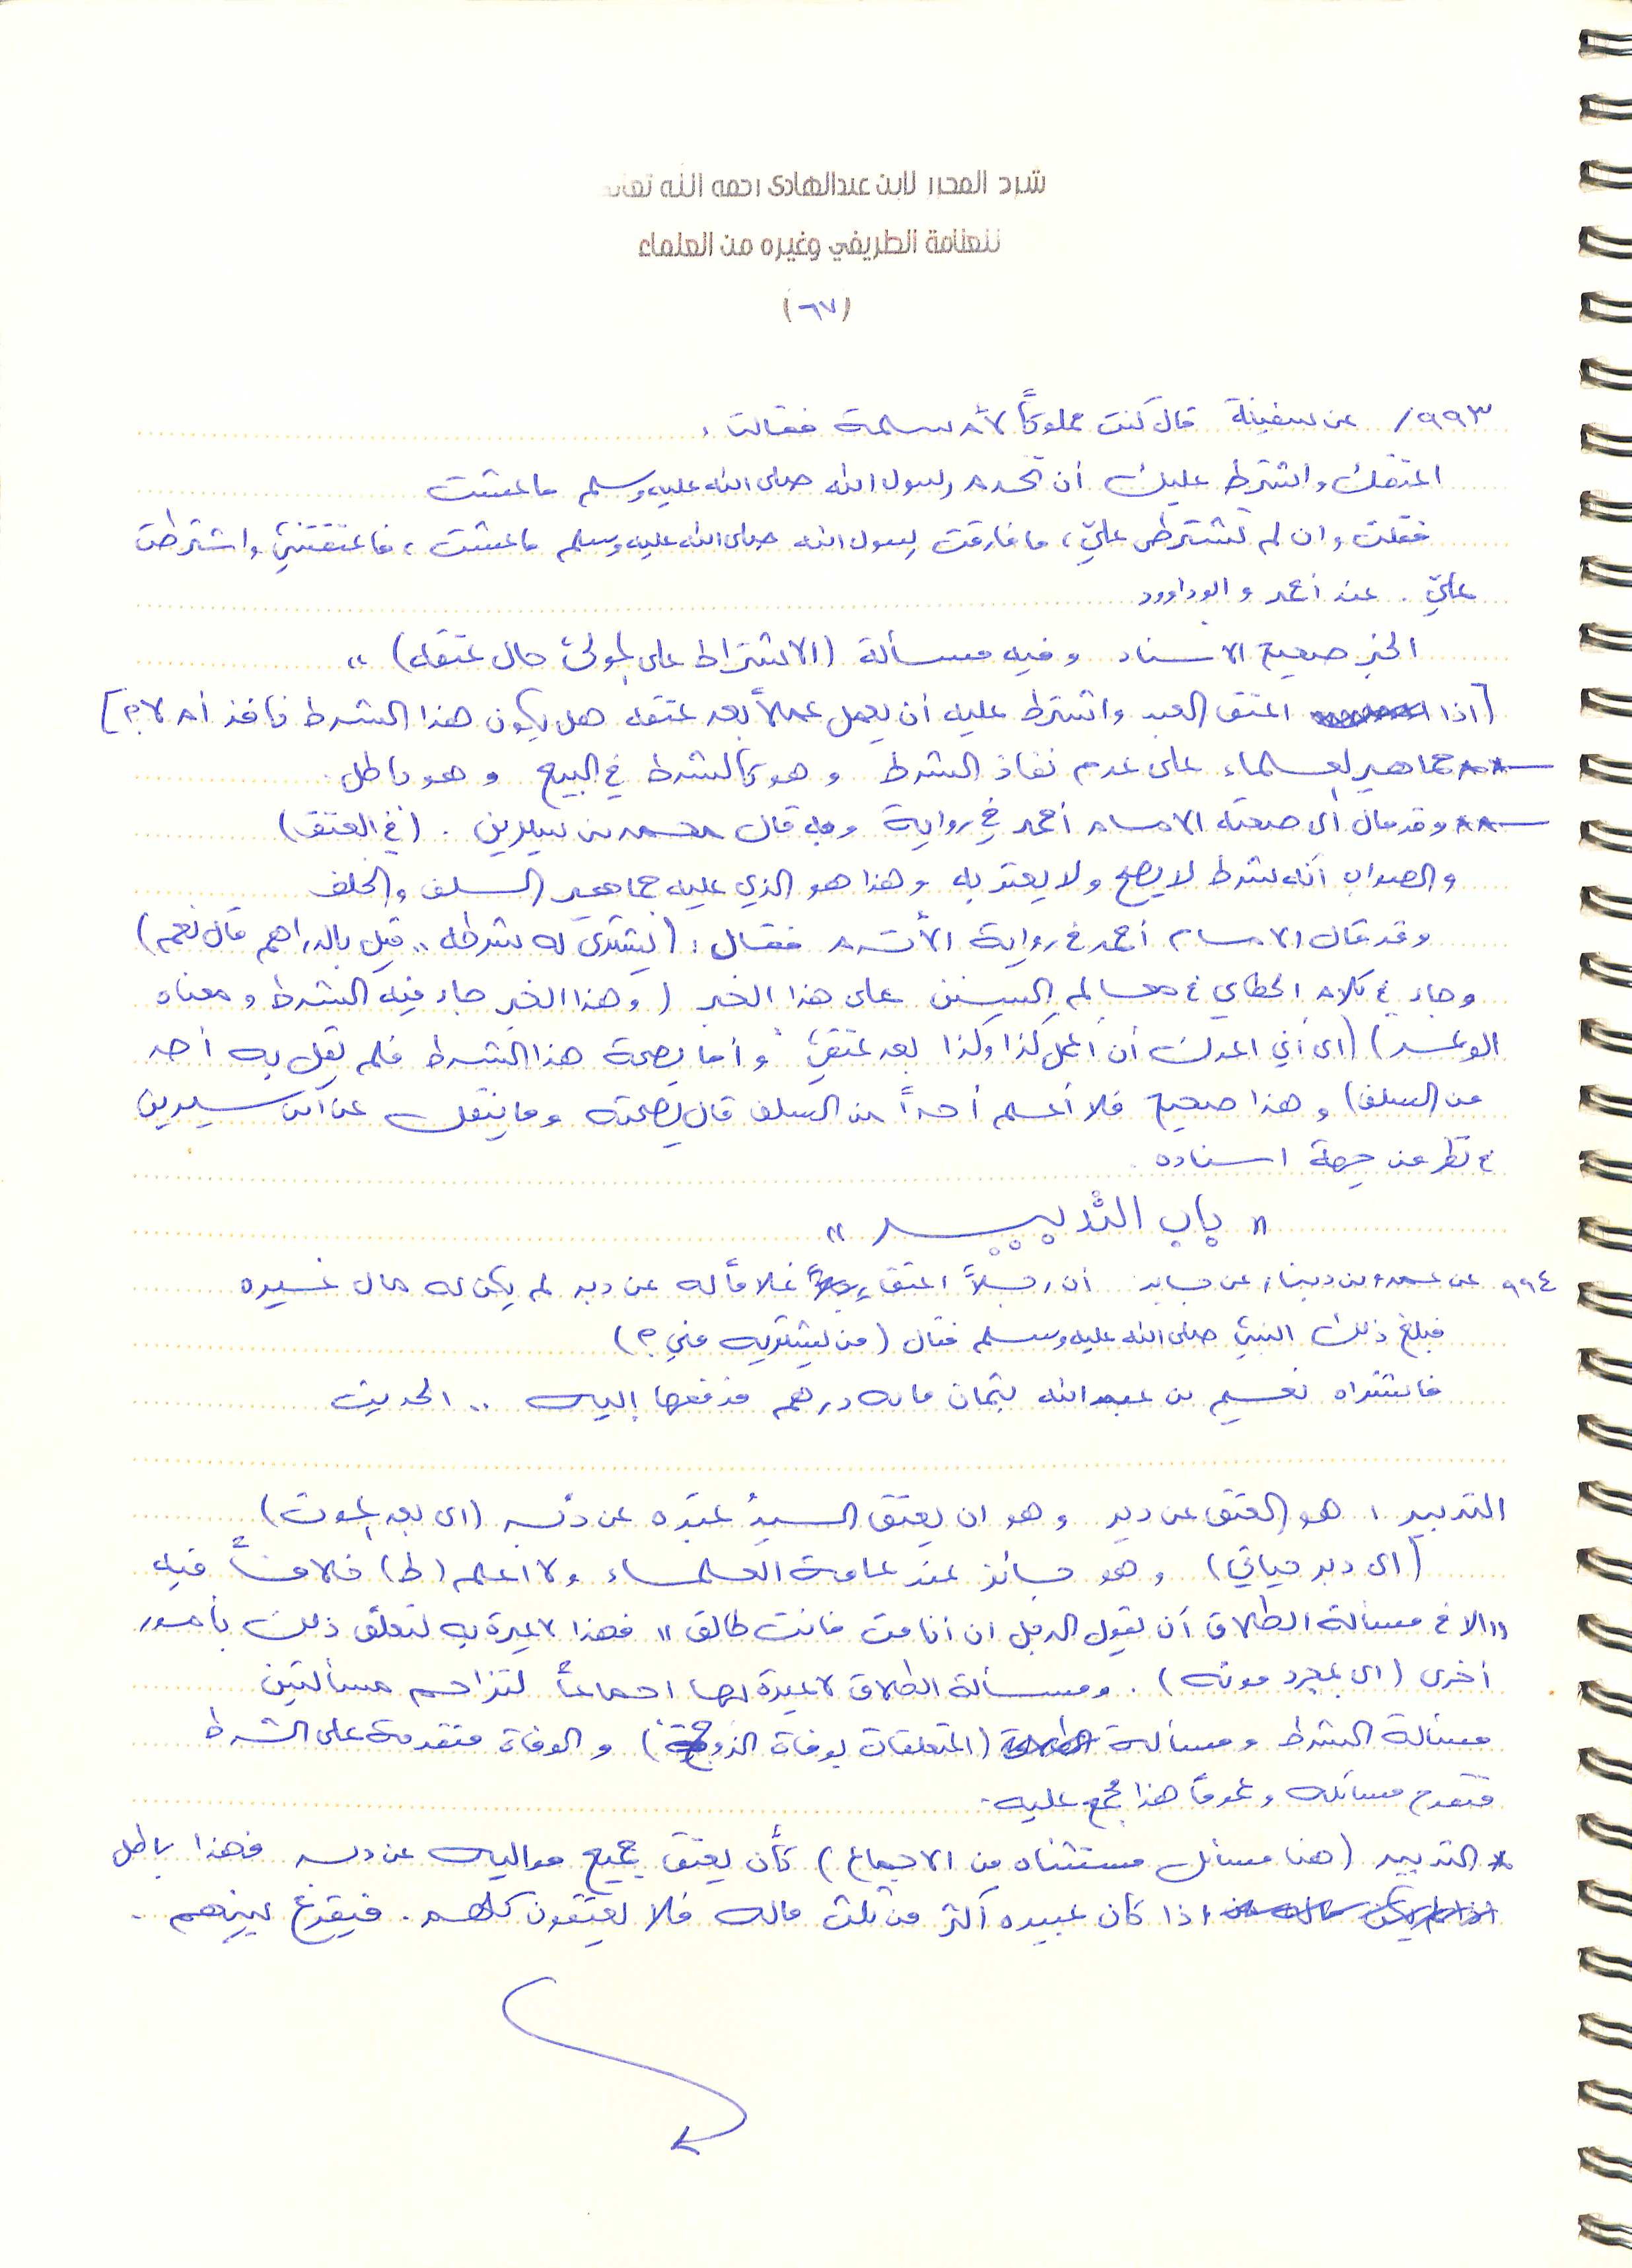 شرح المحرر لابن عبدالهادي رحمه الله تعالى
للعلامة الطريفي وغيره من العلماء
(٦٧)
٩٩٣/ عن سفينة قال كنت مملوكاً لأم سلمة فقالت:
اعتقك واشترط عليك أن تخدم رسول الله صلى الله عليه وسلم ما عشت
فقلت وان لم تشترطي عليّ، ما فارقت رسول الله صلى الله عليه وسلم ما عشت، فاعتقتني واشترطت
عليّ. عند أحمد وابوداوود
الخبر صحيح الاسناد وفيه مسألة (الاشتراط على المولى حال عتقه)،،
[اذا اعتق العبد واشترط عليه أن يعمل عملاً بعد عتقه هل يكون هذا الشرط نافذ أم لا؟]
جماهير العلماء على عدم نفاذ الشرط وهو كالشرط في البيع وهو باطل.
وقد مال الى صحته الامام أحمد في رواية وبه قال محمد بن سيرين. (في العتق)
والصواب أنه شرط لا يصح ولا يعتد به وهذا هو الذي عليه جماهير السلف والخلف
وقد قال الامام أحمد في رواية الأثرم فقال: (يشتري له شرطه.. قيل بالدراهم قال نعم)
وجاء في كلام الخطابي في معالم السنن على هذا الخبر (وهذا الخبر جاء فيه الشرط ومعناه
الوعد) (اى أني اعدك أن اعمل كذا وكذا بعد عتقي) وأما بصحة هذا الشرط فلم يقل به أحد
من السلف) وهذا صحيح فلا أعلم أحداً من السلف قال بصحته وما ينقل عن ابن سيرين
في نظر من جهة اسناده.
" باب التدبيــر "
٩٩٤ عن عمرو بن دينار عن جابر أن رجلاً اعتق غلاماً له عن دبر لم يكن له مال غيره
فبلغ ذلك النبي صلى الله عليه وسلم فقال (من يشتريه مني؟)
فاشتراه نعيم بن عبدالله بثمان مائه درهم فدفعها إليه .. الحديث
التدبير: هو العتق عن دبر وهو ان يعتق السيد عبده عن دبر (اى بعد الموت)
(اى دبر حياتي) وهو جائز عند عامة العلماء ولا اعلم (ط) خلافاً فيه
"الا في مسألة الطلاق أن يقول الرجل ان أنا مت فانت طالق" فهذا لا عبرة به لتعلق ذلك بأمور
أخرى (اى بمجرد موته). ومسألة الطلاق لا عبرة لها اجماعاً لتزاحم مسألتين
مسألة الشرط ومسألة (المتعلقات بوفاة الزوج) والوفاة متقدمة على الشرط
فتقدم مسائله وعموماً هذا مجمع عليه.
* التدبير (هنا مسائل مستثناه من الاجماع) كأن يعتق جميع مواليه عن دبر فهذا باطل
اذا كان عبيده أكثر من ثلث ماله فلا يعتقون كلهم. فيقرع بينهم.